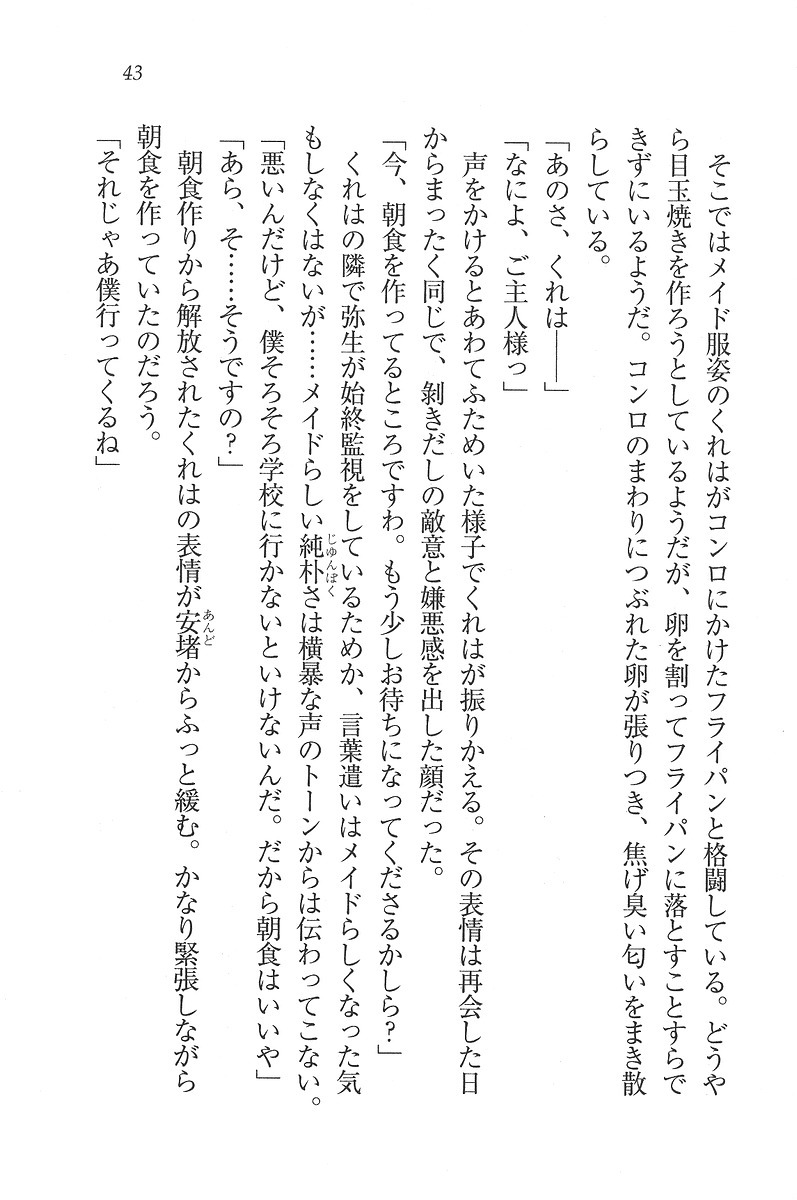 43
そこではメイド服姿のくれはがコンロにかけたフライパンと格闘している。どうや
ら目玉焼きを作ろうとしているようだが、卵を割ってフライパンに落とすことすらで
きずにいるようだ。コンロのまわりにつぶれた卵が張りつき、焦げ臭い匂いをまき散
らしている。
「あのさ、くれは――」
「なによ、ご主人様っ」
声をかけるとあわてふためいた様子でくれはが振りかえる。その表情は再会した日
からまったく同じで、剝きだしの敵意と嫌悪感を出した顔だった。
「今、朝食を作ってるところですわ。もう少しお待ちになってくださるかしら?」
くれはの隣で弥生が始終監視をしているためか、言葉遣いはメイドらしくなった気
もしなくはないが……メイドらしい純朴さは横暴な声のトーンからは伝わってこない。
じゅんぼく
「悪いんだけど、僕そろそろ学校に行かないといけないんだ。だから朝食はいいや」
「あら、そ……そうですの?」
朝食作りから解放されたくれはの表情が安堵からふっと緩む。かなり緊張しながら
あんど
朝食を作っていたのだろう。
「それじゃあ僕行ってくるね」